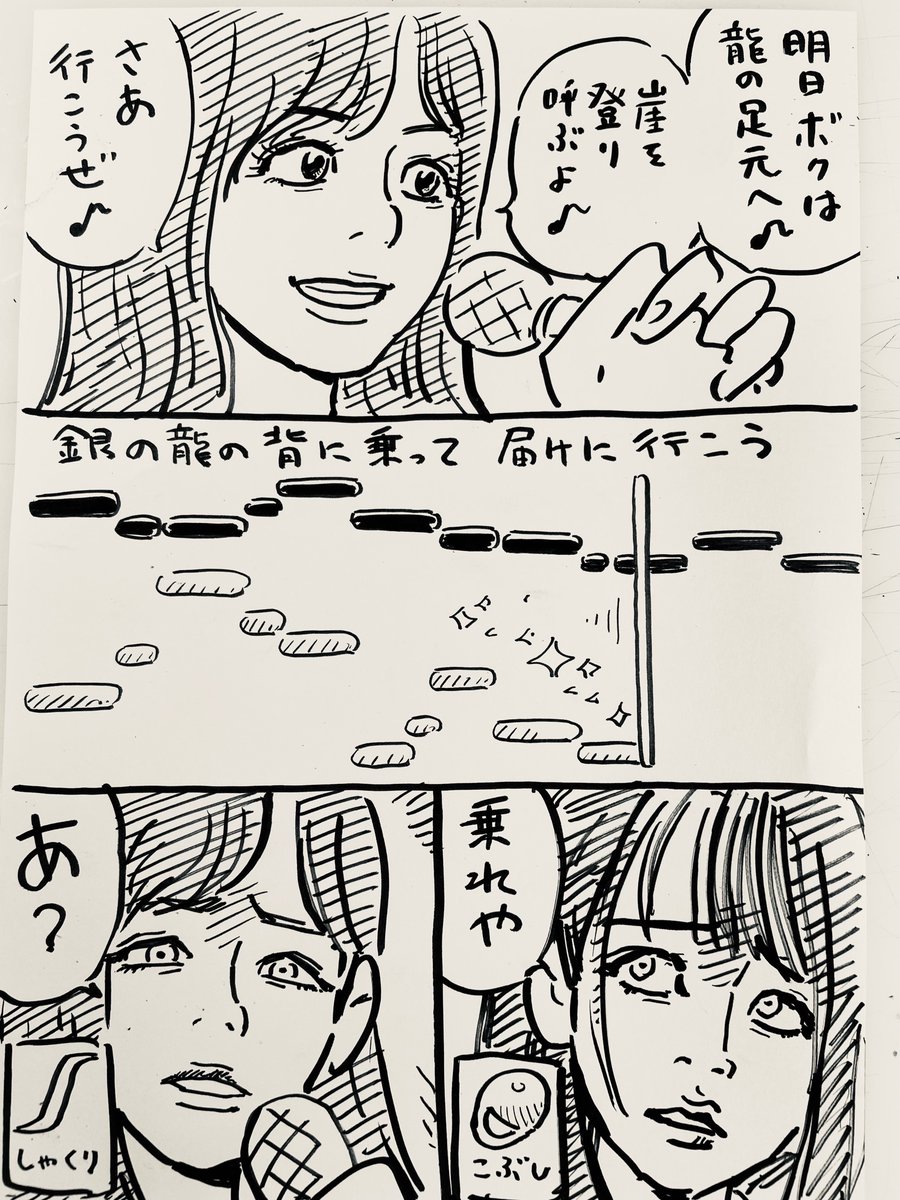 明日ボクは
龍の足元へ♪
崖を
登り
呼ぶよ♪
さあ
行こうぜ♪
銀の龍の背に乗って 届けに行こう
乗れや
こぶし
あ?
しゃくり